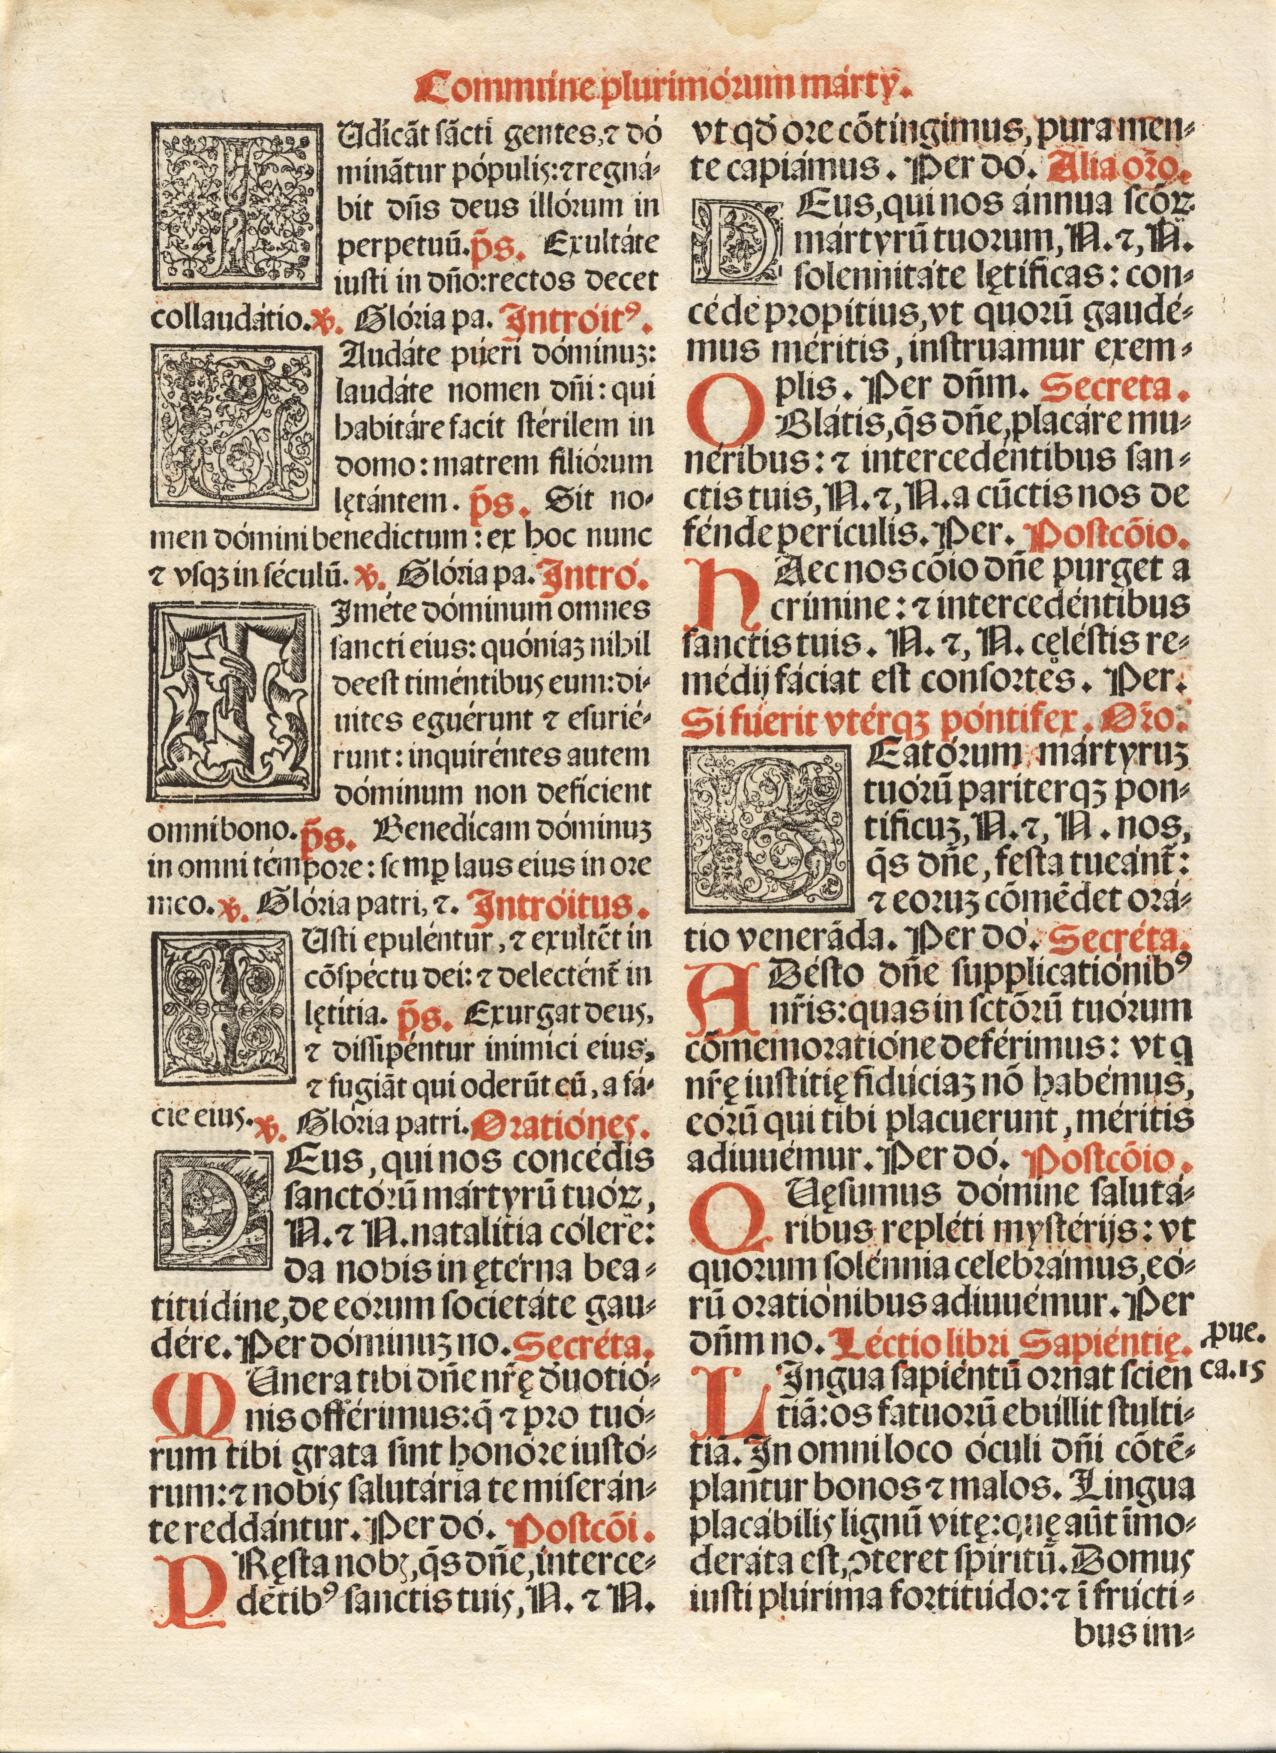 Commúne plurimórum márty̆.
IUdicãt sãcti gentes, ⁊ dó
minãtur pópulis: ⁊ regná⸗
bit dñs deus illórum in
perpetuũ. p̃s. Exultáte
iusti in dño: rectos decet
collaudátio. ℣. Glória pa. Intróitꝰ.
LAudáte púeri dóminuꝫ:
laudáte nomen dñi: qui
habitáre facit stérilem in
domo: matrem filiórum
lętántem. p̃s. Sit no⸗
men dómini benedictum: ex hoc nunc
⁊ vsqꝫ in séculũ. ℣. Glória pa. Intró.
TImẽte dóminum omnes
sancti eius: quóniaꝫ nihil
deest timéntibus eum: di⸗
uites eguérunt ⁊ esurié⸗
runt: inquiréntes autem
dóminum non defícient
omni bono. p̃s. Benedicam dóminuꝫ
in omni témpore: semꝑ laus eius in ore
meo. ℣. Glória patri, ⁊. Intróitus.
IUsti epuléntur, ⁊ exultẽt in
cõspéctu dei: ⁊ delectént̃ in
lętítia. p̃s. Exurgat deus,
⁊ dissipéntur inimíci eius,
⁊ fugiãt qui oderũt eũ, a fá⸗
cie eius. ℣. Glória patri. Oratiónes.
DEus, qui nos concédis
sanctórũ mártyrũ tuóꝝ,
N. ⁊ N. natalítia cólere:
da nobis in ętérna bea⸗
titúdine, de eórum societáte gau⸗
dére. Per dóminuꝫ no. Secréta.
MUnera tibi dñe nr̃ę d̃uotió⸗
nis offérimus: q̃ ⁊ pro tuó⸗
rum tibi grata sint honóre iustó⸗
rum: ⁊ nobis salutária te miserán⸗
te reddántur. Per dó. Postcõi.
PRęsta nobꝫ, q̃s dñe, interce⸗
dẽtibꝰ sanctis tuis, N. ⁊ N.
vt qd̃ ore cõtíngimus, pura men⸗
te capiámus. Per dó. Alia or̃o.
DEus, qui nos ánnua scõꝝ
mártyrũ tuorum, N. ⁊, N.
solennitáte lętíficas: con⸗
céde propítius, vt quorũ gaudé⸗
mus méritis, instruamur exem⸗
plis. Per dñm. Secreta.
OBlátis, q̃s dñe, placáre mu⸗
néribus: ⁊ intercedéntibus san⸗
ctis tuis, N. ⁊, N. a cũctis nos de
fénde perículis. Per. Postcõio.
HAec nos cõio dñe purget a
crimine: ⁊ intercedéntibus
sanctis tuis. N. ⁊, N. cęléstis re⸗
médij fáciat est consortes. Per.
Si fúerit vtérqꝫ póntifex. Or̃o.
BEatórum mártyruꝫ
tuórũ paritérqꝫ pon⸗
tíficuꝫ, N. ⁊, N. nos,
q̃s dñe, festa tueánt̃:
⁊ eoruꝫ cõmẽdet orá⸗
tio venerãda. Per dó. Secréta.
ADésto dñe supplicatiónibꝰ
nr̃is: quas in sctõrũ tuórum
cõmemoratióne deférimus: vt q
nr̃ę iustítię fidúciaꝫ nõ habémus,
eórũ qui tibi placuerunt, méritis
adiuuémur. Per dó. Postcõio.
QUęsumus dómine salutá⸗
ribus repléti mystérijs: vt
quorum solénnia celebrámus, eó⸗
rũ oratiónibus adiuuémur. Per
dñm no. Léctio libri Sapiéntię.
pue.
ca. 15
LIngua sapiéntũ ornat scien
tiã: os fatuorũ ebúllit stulti⸗
tiã. In omni loco óculi dñi cõtẽ⸗
plántur bonos ⁊ malos. Lingua
placábilis lignũ vitę: quę aũt ĩmo⸗
deráta est, ↄteret spíritũ. Domus
iusti plúrima fortitúdo: ⁊ ĩ frúcti⸗
bus im⸗